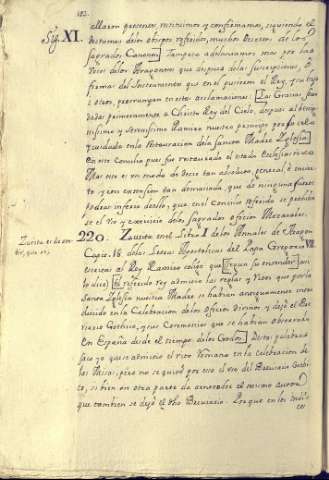 182.
Sig. XI.
ellaron presentes, restituimos y confirmamos, siguiendo el
dictamen de los obispos referido, muchos Decretos de los
sagrados Canones. Tampoco adelantamos mas por las
voces de los Aragoneses que despues de las suscripciones, o
firmas del Sacramento que en él pusieron el Rey, y su hijo
i otros, prorrumpen en estas aclamaciones. [Las Gracias sean
dadas primeramente a Christo Rey del Cielo, despues al
nisimo y Serenisimo Ramiro nuestro principe por su zelo
y cuidado en la restauracion de la Santa Madre Iglesia]
En este Concilio pues fue restaurado el estado Eclesiastico
Mas esto es un modo de decir tan absoluto, general
to, y con extension tan demasiada, que de ninguna suerte
podeis inferir desde, que en el Concilio referido se prohibie
se el vso y exercicio de los sagrados oficios Mozarabes.
Zurita es de
220. Zurita en el Libro I de los Annales de Aragon
Capit. 18. de las Letras Apostolicas del Papa Gregorio VII
escritas al Rey Ramiro colige que [segun su entender
el referido rey admitio las reglas y vsos que por la
Santa Iglesia nuestra Madre se habian antiguamente intro
ducido en la Celebracion de los oficios divinos y dejó el Bre
viario Gothico, y sus Ceremonias que se habian observado
en España desde el tiempo de los Godos.] Destas palabras
saco yo que se admitio el rito Romano en la celebracion de
las Missas, pero no se quitó por eso el vso del Breviario Gothi
co, si bien en otra parte da a entender el mismo autor
que tambien se dejó el otro Breviario. Porque en los Indi
ces